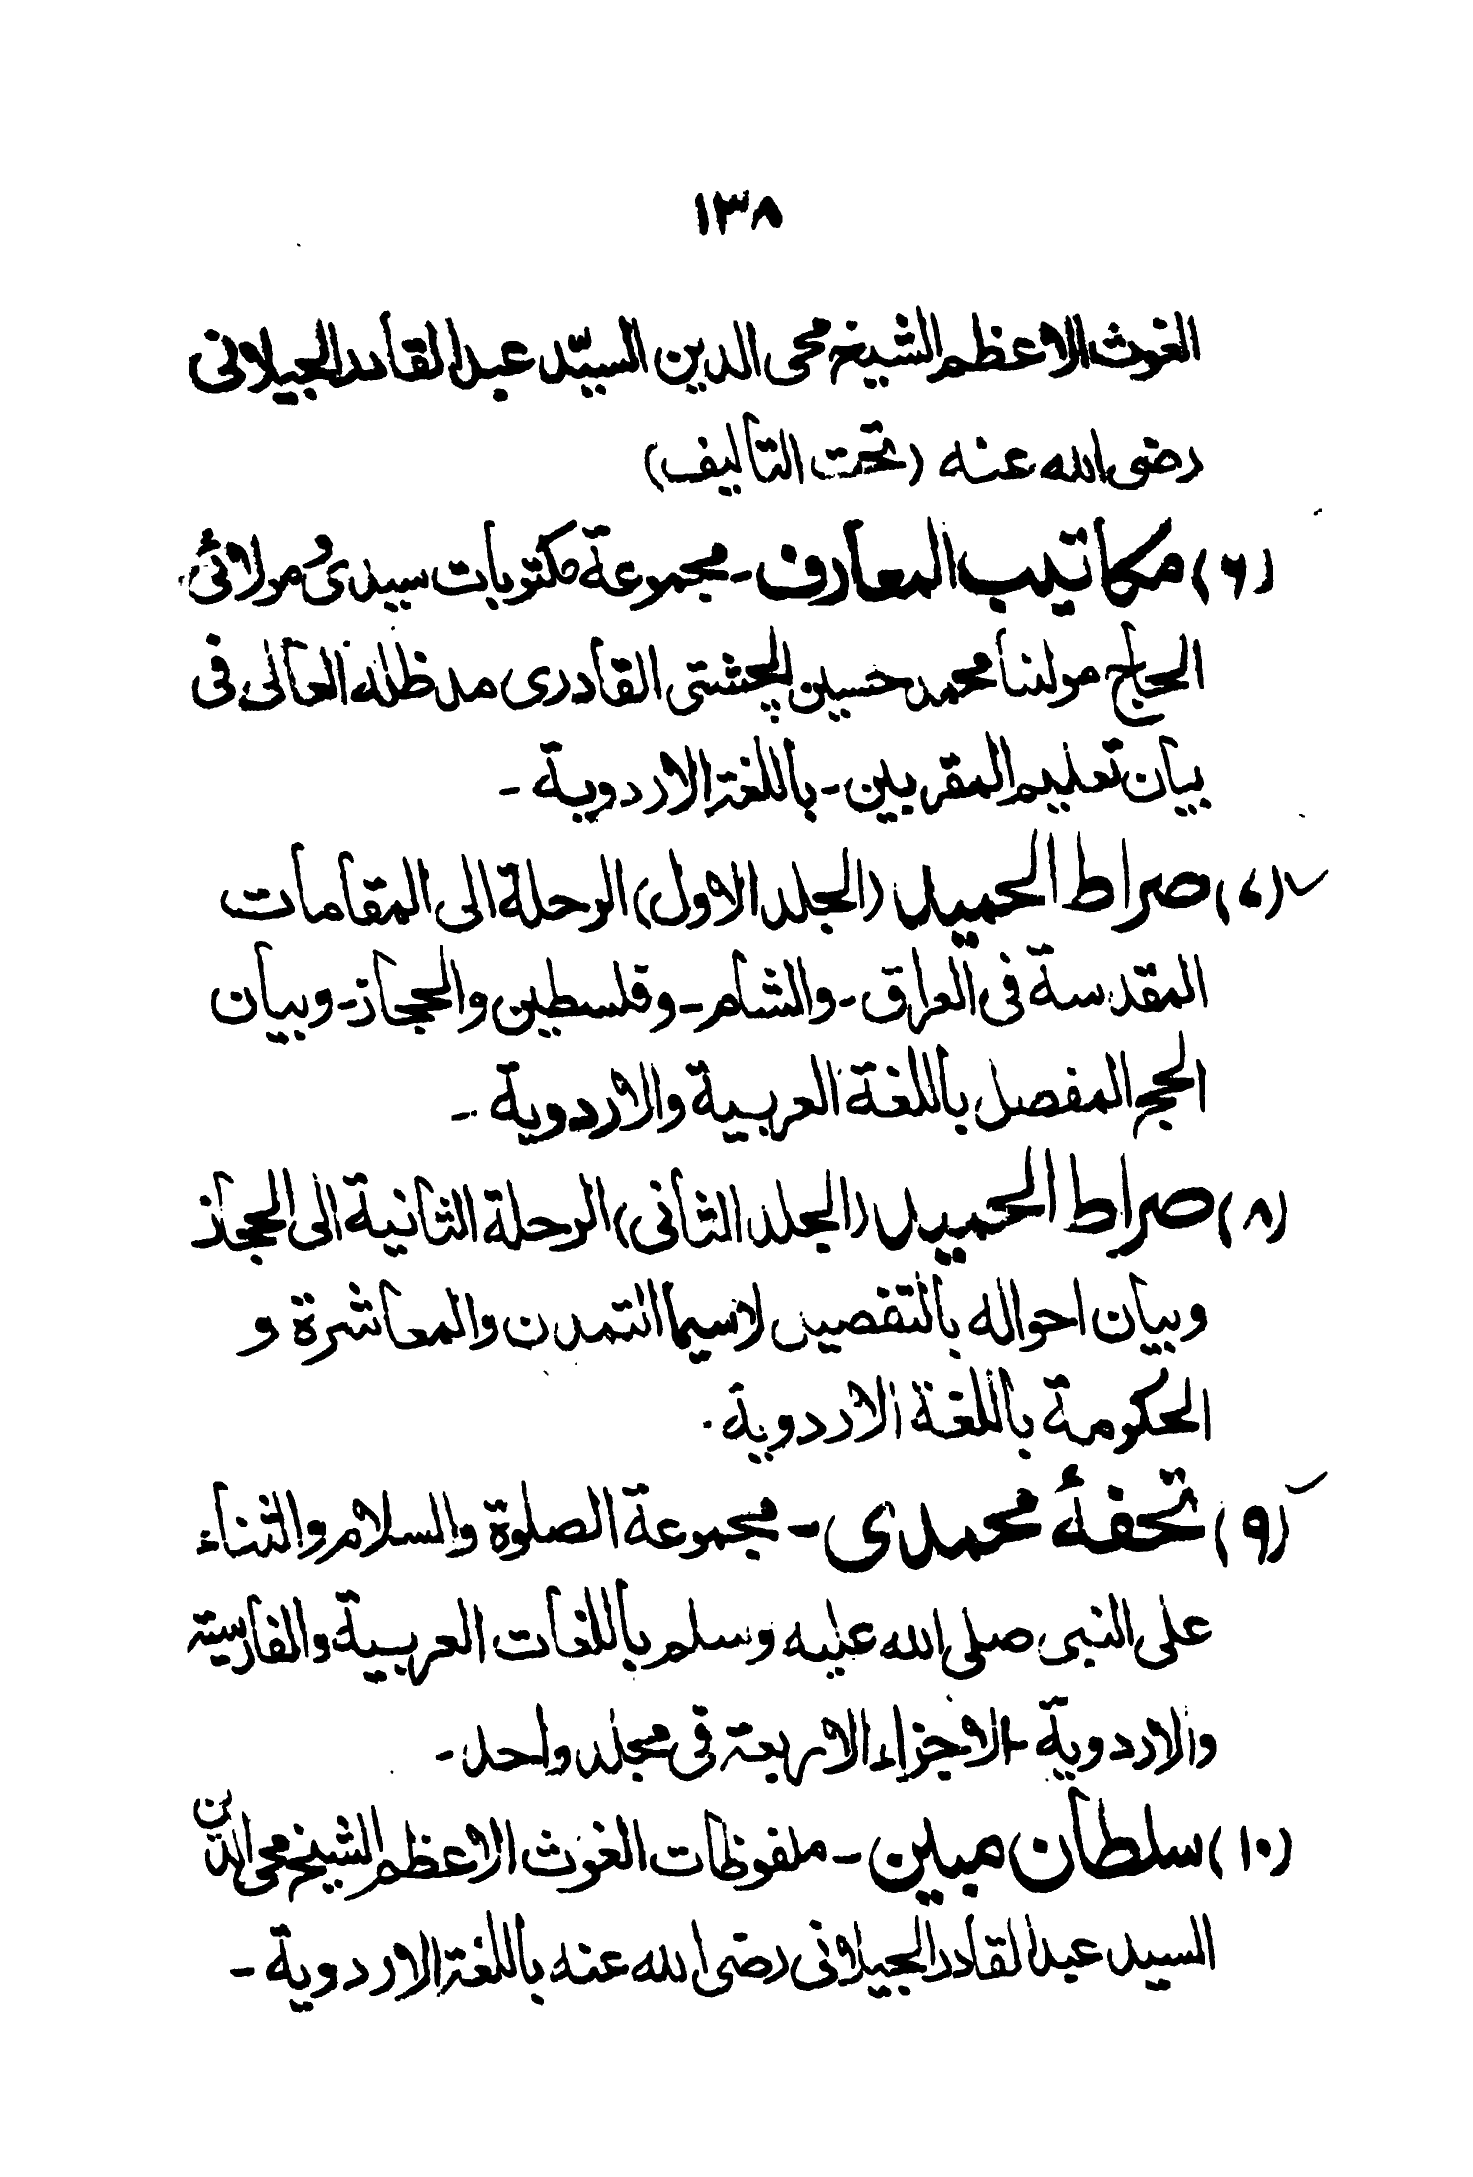 ١٣٨
الغوث الاعظم الشيخ محى الدين السيّد عبد القادر الجيلانى
رضى الله عنه (تحت التأليف)
(۶) مكاتيب المعارف - مجموعة مكتوبات سيدىُ و مولائىُ
الحاج مولنا محمد حسين الچشتى القادرى مد ظله العالى فى
بيان تعليم المقربين - باللغة الاردوية -
(۷) صراط الحميد (المجلد الاول) الرحلة الى المقامات
المقدسة فى العراق - والشام - وفلسطين والحجاز - وبيان
الحج المفصل باللغة العربية والاردوية -
(۸) صراط الحميد (المجلد الثانى) الرحلة الثانية الى الحجاز
وبيان احواله بالتفصيل لاسيما التمدن والمعاشرة و
الحكومة باللغة الاردوية .
(۹) تحفۂ محمدى - مجموعة الصلوة والسلام والثناء
على النبى صلى الله عليه وسلم باللغات العربية والفارسية
والاردوية - الاجزاء الاربعة فى مجلد واحد -
(۱۰) سلطان مبين - ملفوظات الغوث الاعظم الشيخ محى الدين
السيد عبد القادر الجيلانى رضى الله عنه باللغة الاردوية -